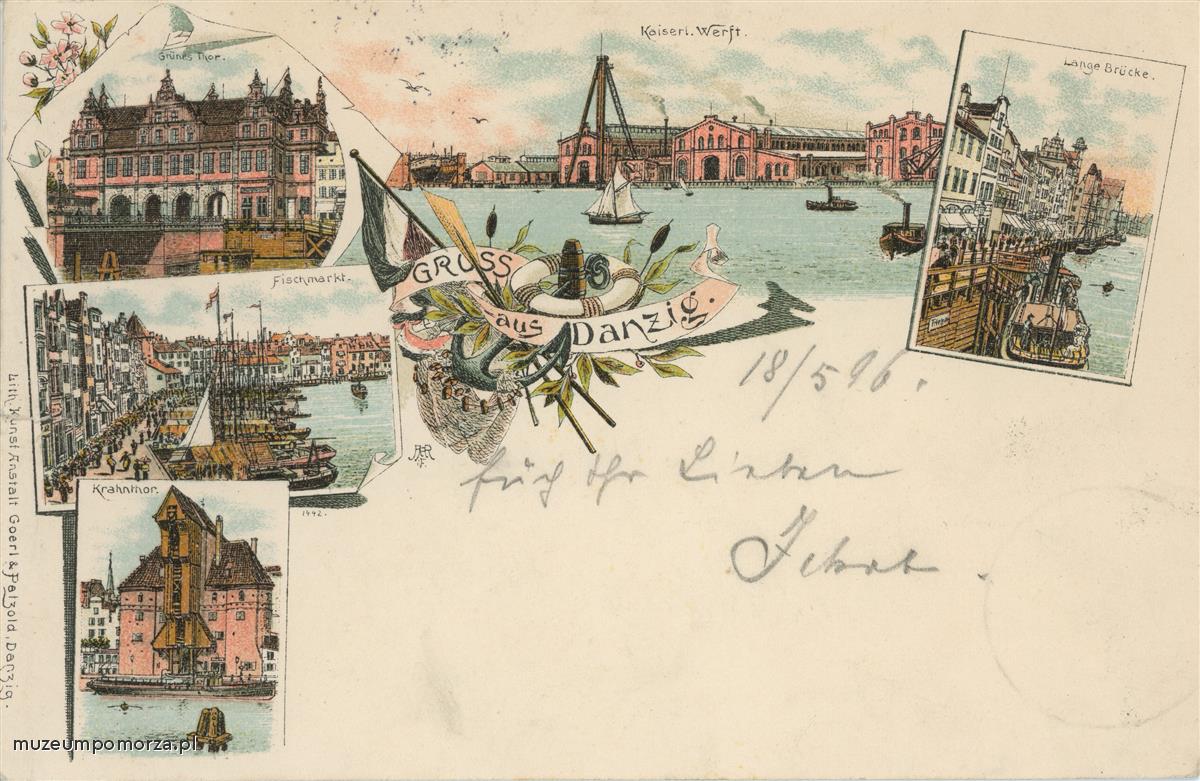 Grünes Thor.
Kaiserl. Werft.
Lange Brücke.
GRUSS
aus
Danzig.
Fischmarkt.
18/5 96.
Ihr Lieben
Krahnthor.
1442.
Lith. Kunst Anstalt Goerl & Patzold, Danzig.
muzeumpomorza.pl